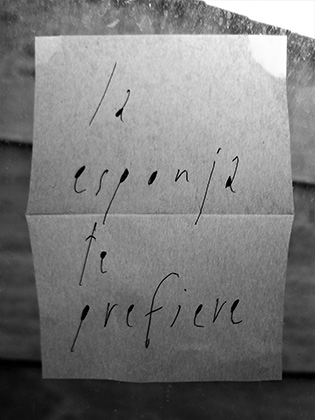 la
esponja
te
prefiere